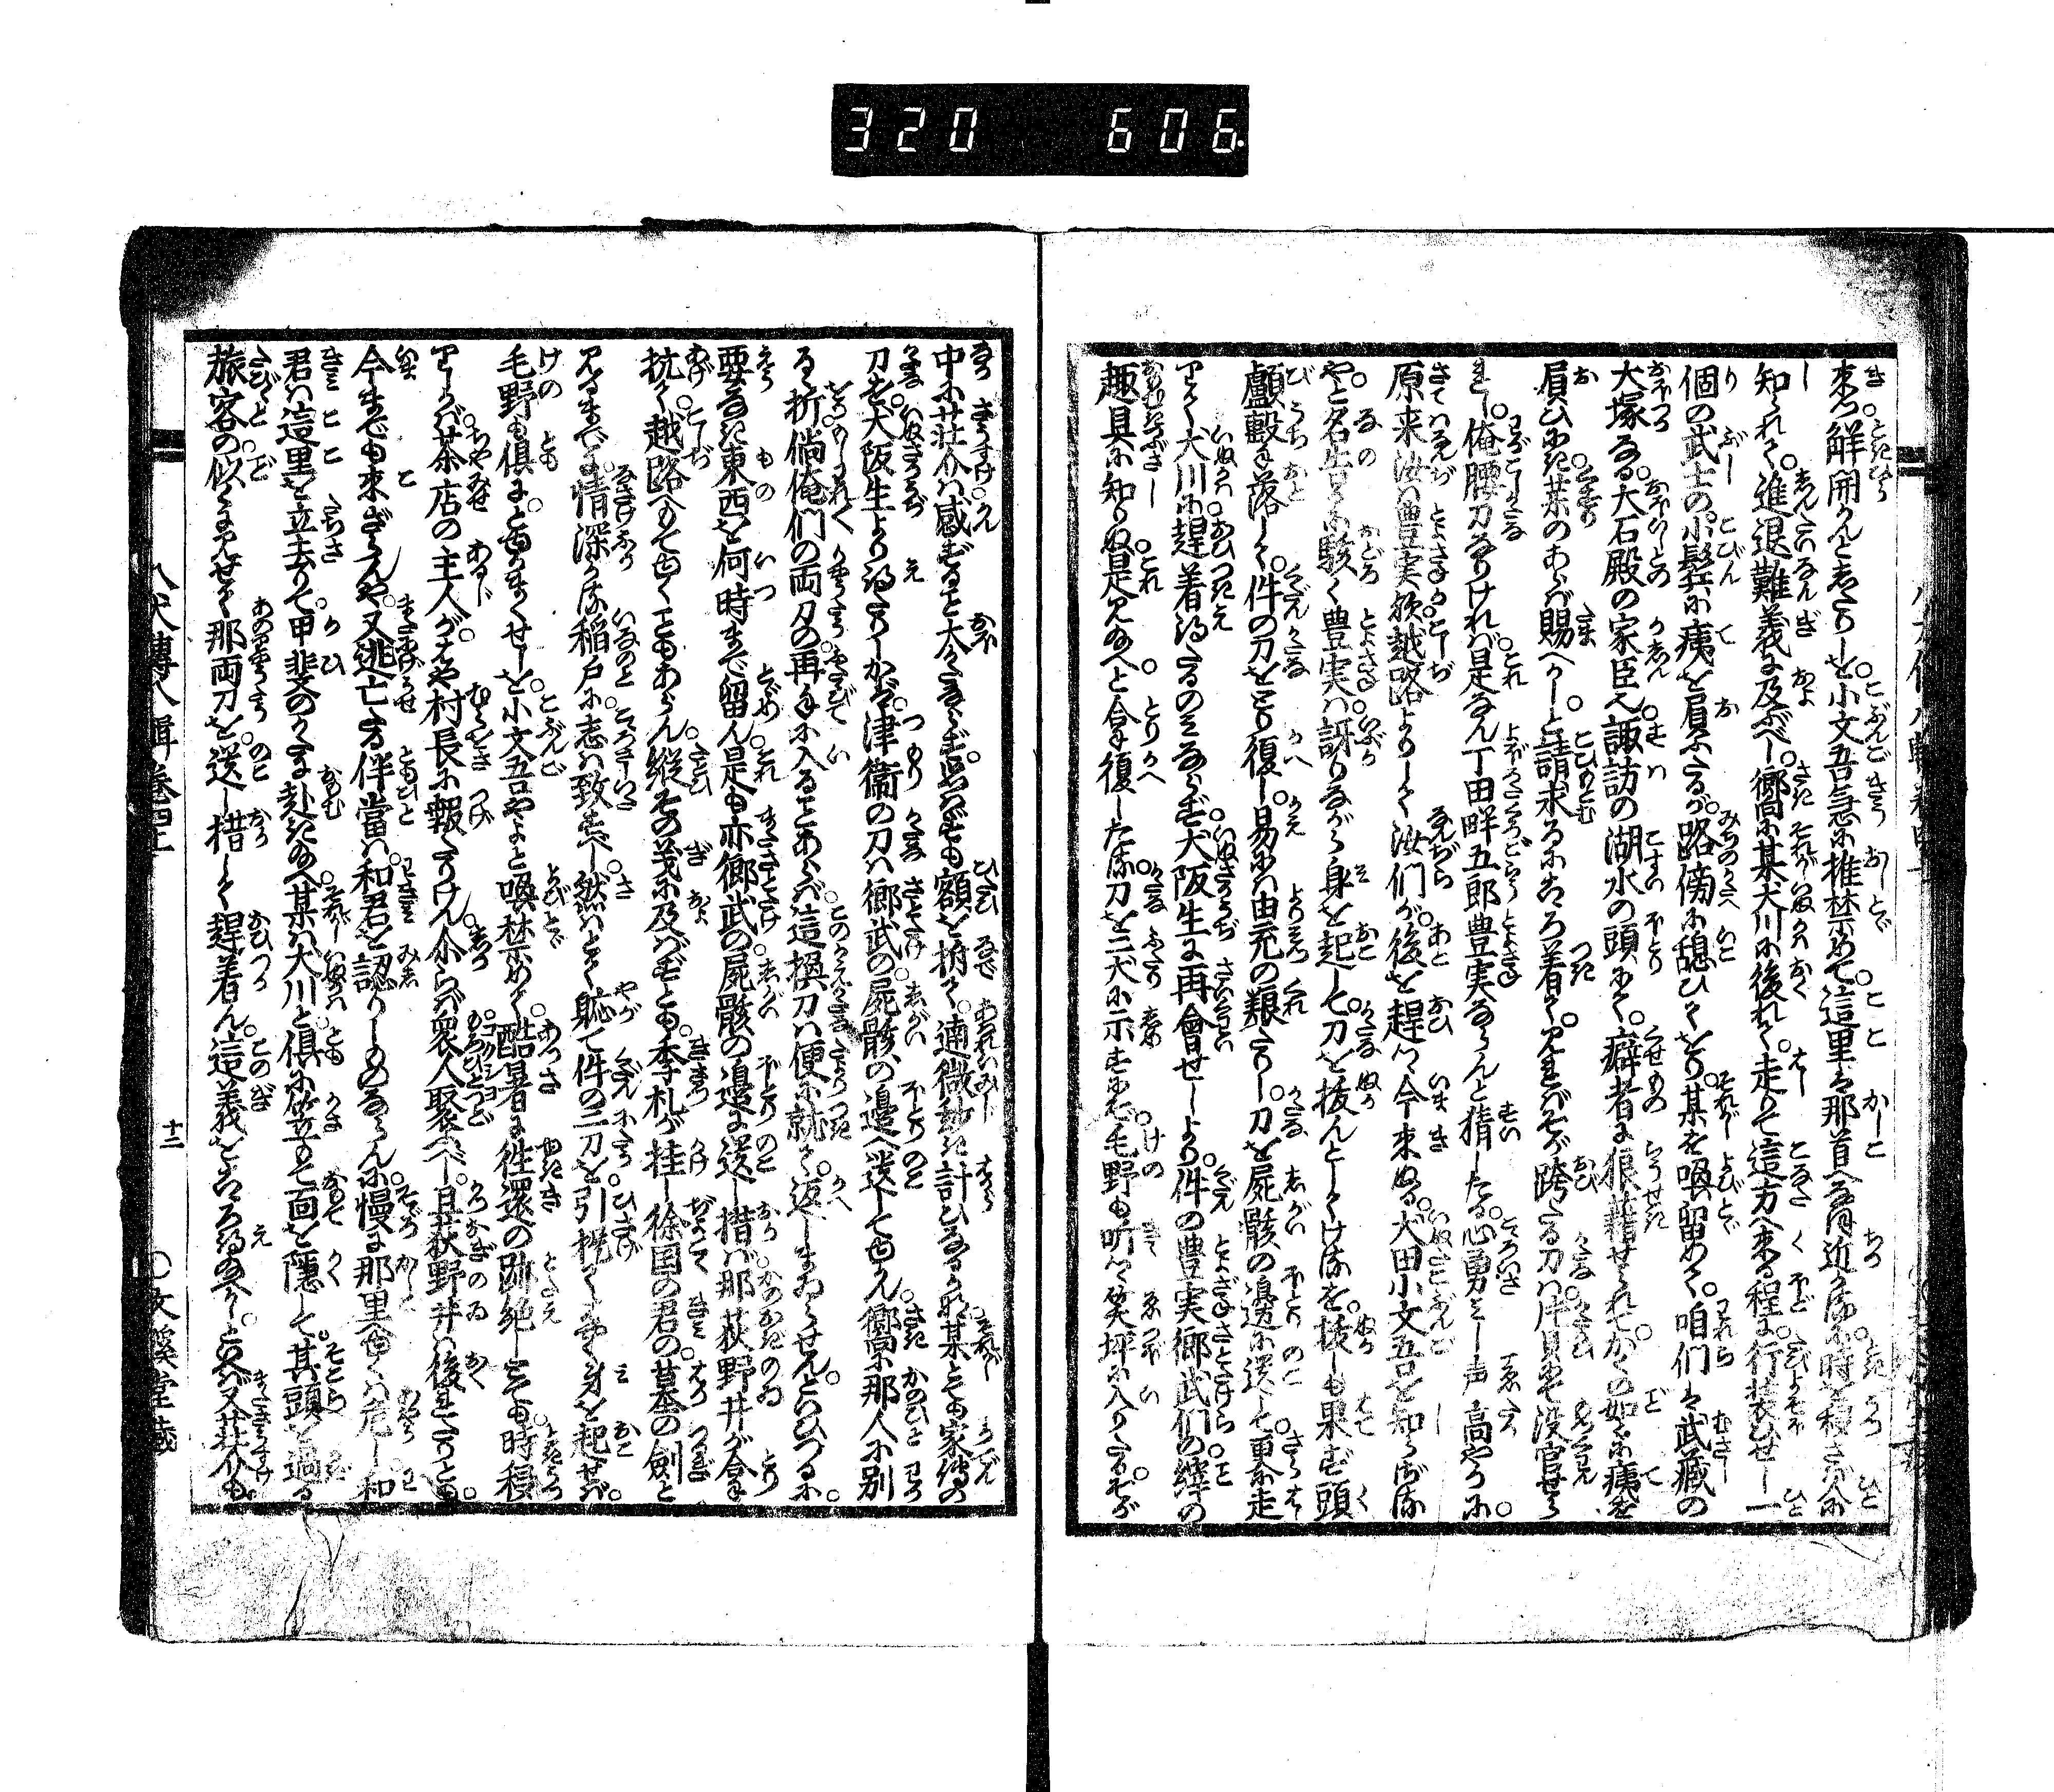 320 606
来つ鮮開かんとしたりしを。小文吾急に推禁めて。這里は那首へ程近かるに。時を移さば人に
知られて。進退難義に及ぶべし。嚮に某犬川に後れて。走りて這方へ来る程に。行装ひせし一
個の武士の。小鬢に痍を肩ふたるが。路傍に憩ひてをり。某を喚留めて。咱們は武蔵の
大塚なる。大石殿の家臣也。諏訪の湖水の頭にて。癖者に狼藉せられて。かくの如くに痍を
肩ひにき。薬のあらば賜へかしと請求るにこころ着て。見ればそが跨たる刀は。片貝にて没官せら
れし。俺腰刀なりければ。是なん丁田畔五郎豊実ならんと猜したる。心勇みし声高やかに。
原来汝は豊実欤。越路よりして汝們が。後を趕つつ今来ぬる。犬田小文吾を知らざる
や。と名告るに駭く豊実は。訝りながら身を起して。刀を抜んとしてけるを。抜しも果ず頭
顱戳と落して。件の刀をとり復し。易るには由充の
りて犬川に趕着得たるのみならず。犬阪生に再會せしより。件の豊実郷武們の縡の
趣具に知りぬ。是見給へと合復したる刀を二犬に示すにぞ。毛野も听つつ笑坪に入りたる。そが
中に荘介は感ずること大かたならず。思はずも額を拊て。適微妙き計ひなるかな。某とても家傳の
刀を。犬阪生より得たりしかば。津衛の刀は郷武の。屍骸の邊へ送して也けん。嚮に那人に別
るる折。倘俺們の両刀の。再手に入ることあらば。這換刀は便に就て。返しまゐらせんといひつるに。
要なき東西を何時まで留ん。是も亦郷武の。屍骸の邊に送し措ば。那荻野井が合手
抗て。越路へもて也くこともあらん。縦その義に及ばずとも。季札が挂し徐国の君の。墓の劍と
見るまでに。情深かる稲戸に。志は致すべし。然はとて軈て件の二刀を。引提てやをら身を起せば。
毛野も倶にと也かまくせしを。小文吾やよと喚禁めて。酷暑に徃還の跡絶しとても。時移
りしかば茶店の主人が。はや村長に報たりけん。尓らば衆人聚合べし。且荻野井は後れたりとも。
今までも来ざらんや。又逃亡たる伴當は。和君を認りしものならんに。慢に那里へ也くは危し。和
君は這里を立去りて。甲斐のかたに赴き給へ。某は大川と倶に笠もて面を隠して。其頭を過る
旅客の似くに見せて。那両刀を。送し措して趕着ん。這義をこころ得給へかし。といへば又荘介も
八犬傳八輯巻四上
十二
○文溪堂蔵